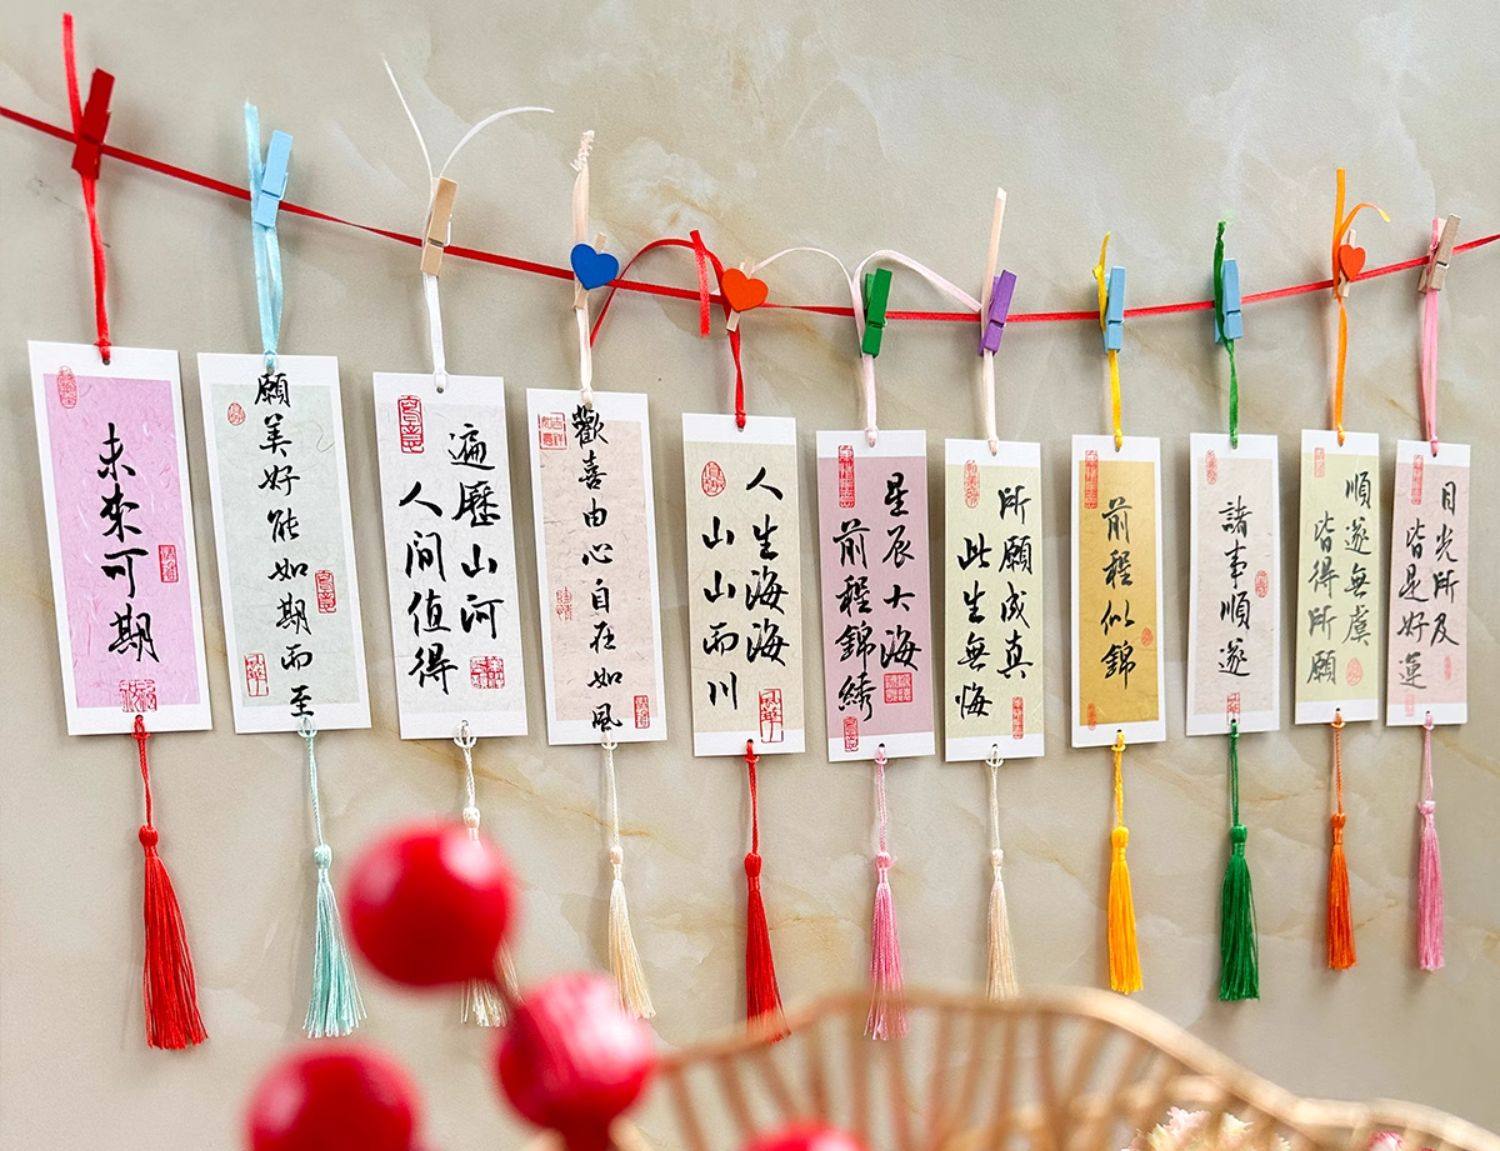 未來可期
願美好能如期而至
遍歷山河
人间值得
歡喜由心自在如風
人生海海
山山而川
星辰大海
前程錦綉
所願成真
此生無悔
前程似錦
諸事順遂
順遂無虞
皆得所願
目光所及
皆是好運